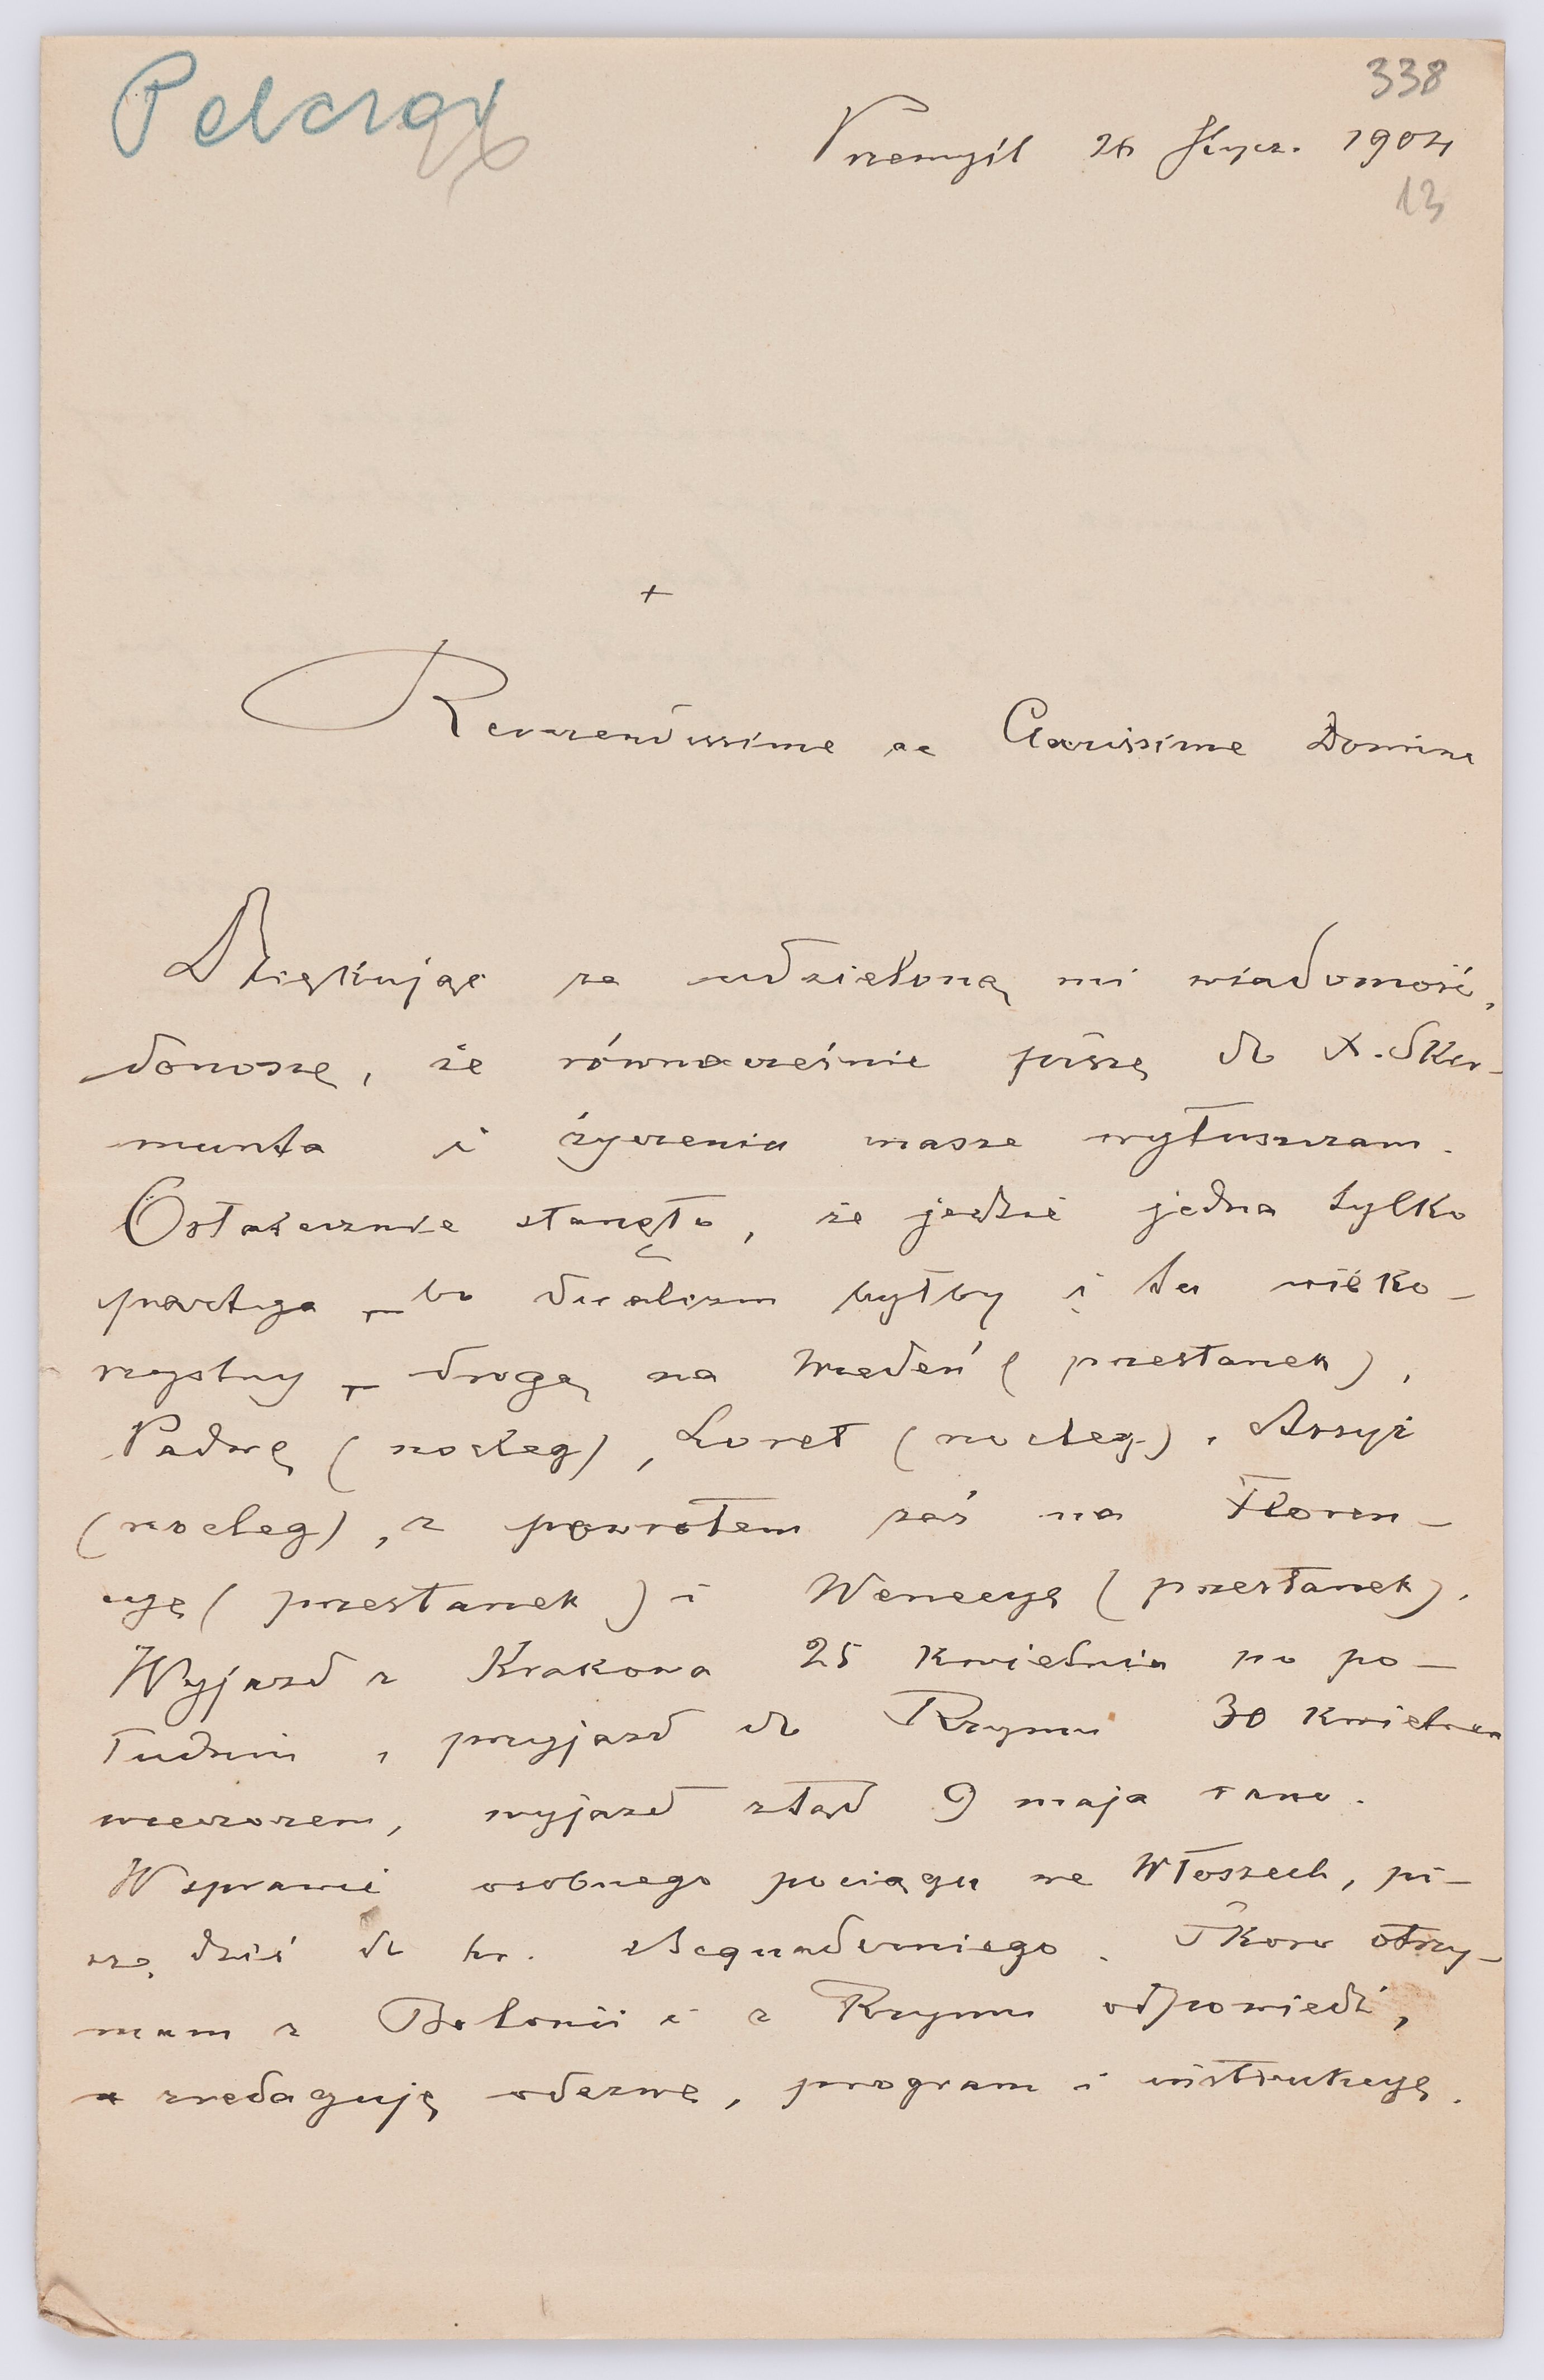 Pelczar
338
Przemyśl 26 Stycz. 1904
13
+
Reverendissime ac Clarissime Domine
Dziękując za udzieloną mi wiadomość,
donoszę, że równocześnie piszę do X. Skir-
munta i życzenia nasze wyłuszczam.
Ostatecznie stanęło, że jedzie jedna tylko
partya – bo dualizm byłby i tu nieko-
rzystny – drogą na Wiedeń (przestanek),
Padwę (nocleg), Loret (nocleg), Assyż
(nocleg), z powrotem zaś na Floren-
cyę (przestanek) i Wenecyę (przestanek).
Wyjazd z Krakowa 25 kwietnia po po-
łudniu, przyjazd do Rzymu 30 kwietnia
wieczorem, wyjazd ztąd 9 maja rano.
W sprawie osobnego pociągu we Włoszech, pi-
szę dziś do hr. Acquaderniego. Skoro otrzy-
mam z Bolonii i z Rzymu odpowiedź,
zredaguję odezwę, program i instrukcyę.